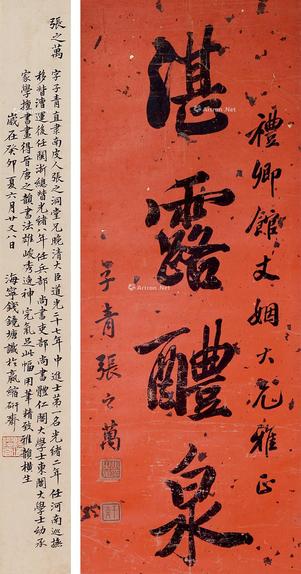 禮卿館丈姻大兄雅正
湛露醴泉
子青張之萬
張之萬
字子青直隶南皮人張之洞堂兄晚清大臣道光二十七年中進士第一名光緒二年任河南巡撫
移督漕運後任閩浙總督光緒八年任兵部尚書吏部尚書體仁閣大學士東閣大學士幼承
家學擅書畫得晉唐之韻書法雄峻秀逸神完氣足此幅用筆精致雅韻橫生
歲在癸卯夏六月廿又八日
海寧錢鏡塘識於瀛縮研齋